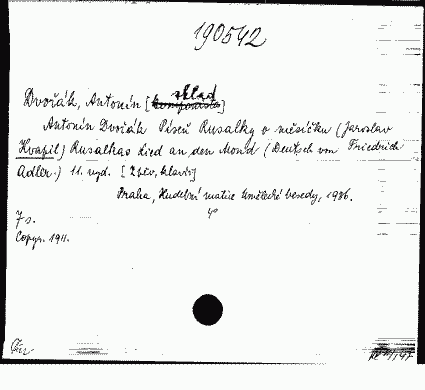 190542
Dvořák, Antonín [sklad]
Antonín Dvořák Píseň Rusalky o měsíčku (Jaroslav
Kvapil) Rusalkas Lied an den Mond (Deutsch von Friedrich
Adler.) 11. vyd. [Zpěv, klavír]
Praha, Hudební matice Umělecké besedy, 1936.
4°
7 s.
Copyr. 1911.